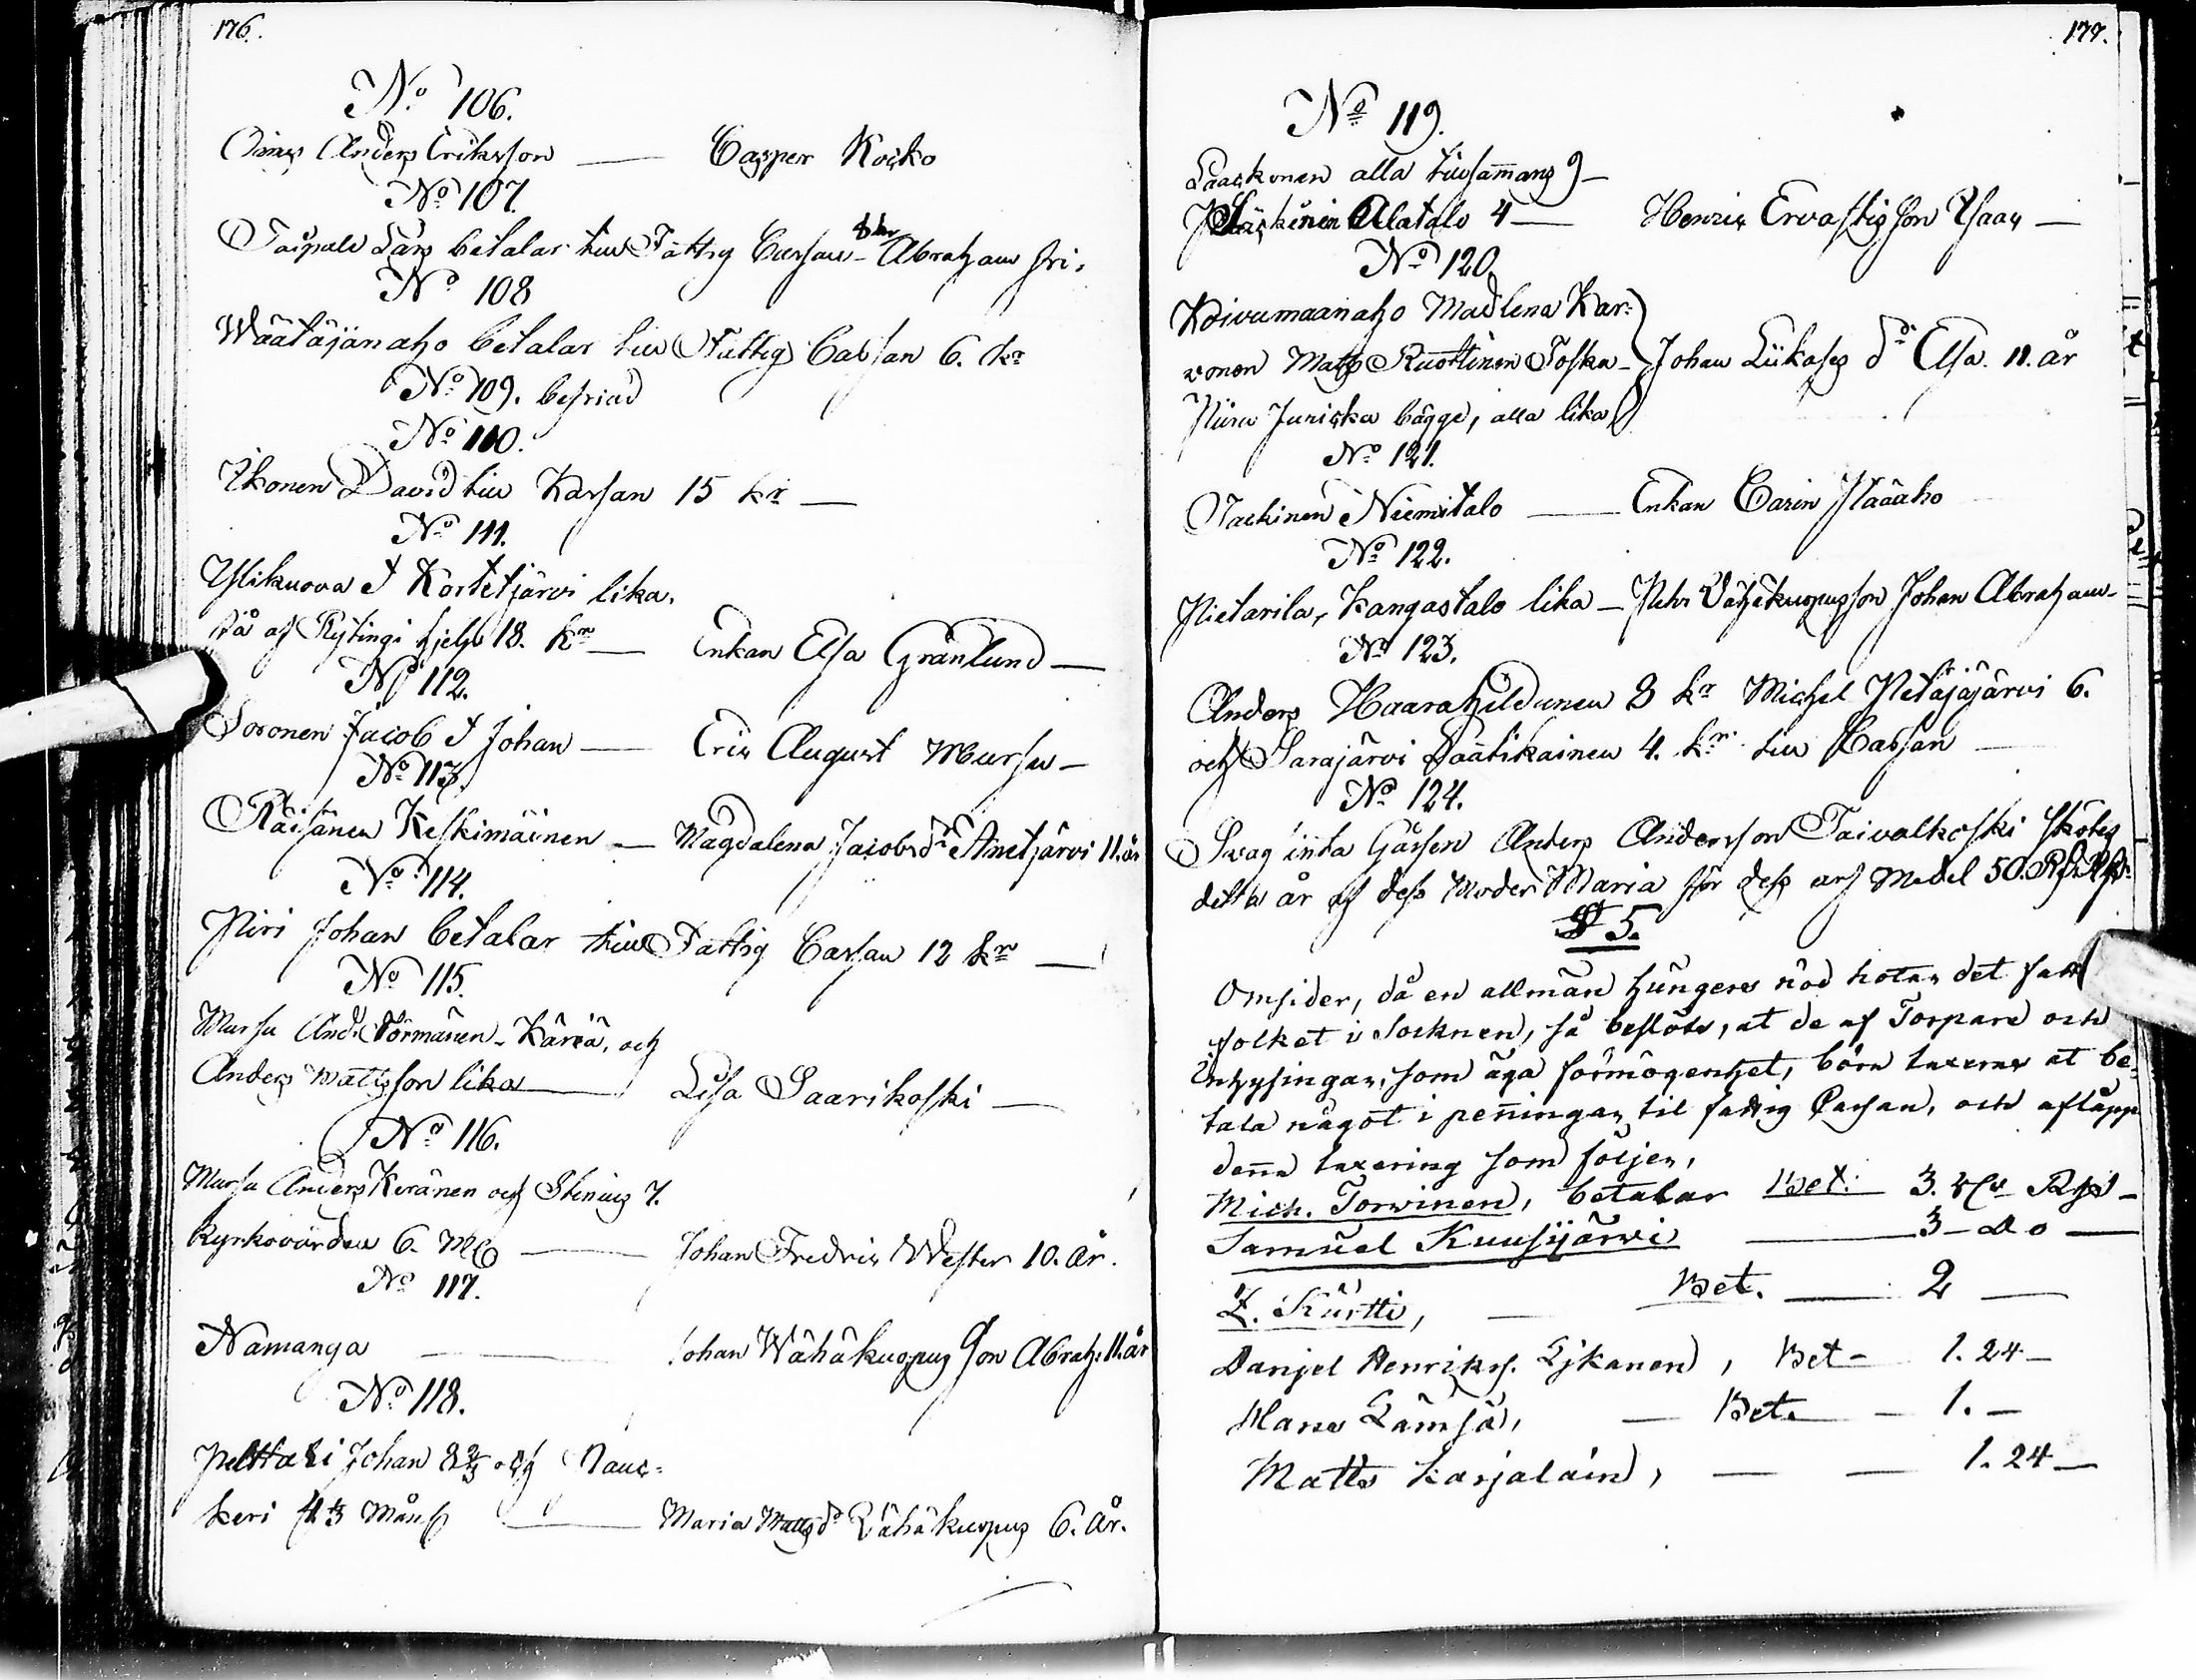 176.
No 106.
Anders Eriksson — Casper Koisko
No 107.
Taipale Lars betalar till Fattig Cassan 8 kr Abraham fri.
No 108
Wäätäjänaho betalar till Fattig Cassan 6. kr
No 109. befriad
No 110.
Ikonen David till Kassan 15 kr —
No 111.
Ylikuova & Kortetjärvi lika,
få af Rytingi hjelp 18. kr — Enkan Elsa Granlund —
No 112.
Soronen Jacob & Johan — Eric August Mursu —
No 113.
Räisänen Keskimäinen — Magdalena Jacobsdr Ainetjärvi 11. år
No 114.
Piri Johan betalar till Fattig Cassan 12 kr —
No 115.
Mursu And. Törmänen - Käriä, och
Anders Mattsson lika — Lisa Saarikoski —
No 116.
Mursu Anders Keränen och Stenius 7.
Kyrkovärden 6. — Johan Fredric Wester 10. år.
No 117.
Nämänga — Johan Wähäkuopus Son Abrah. 11. år
No 118.
Pelttari Johan och Nauc-
keri Måns — Maria Mattsdr Wähäkuopus 6. år.
177.
No 119.
Laackonen alla tillsammans 9 —
Alatalo 4 — Henric Ervastis Son Isaac —
No 120.
Koivumaanaho Madlena Kar-
vonen Matts Ruottinen Toska - Johan Liikases dr Elsa. 11. år
Niira Juriska bägge, alla lika
No 121.
Tackinen Niemitalo — Enkan Carin
No 122.
Pietarila, Kangastalo lika — Pehr Vähäkuopus son Johan Abraham -
No 123.
Anders Haarahildunen 8 kr Michel Petäjäjärvi 6.
och Sarajärvi Säätikainen 4. kr till Cassan —
No 124.
Swag sinta Gåssen Anders Andersson Taivalkoski skötes
detta år af dess Moder Maria för dess arf Medel 50.
§ 5.
Omsider, då en allmän hungers nöd hotar det
folket i Socknen, så beslöts, at de af Torpare och
inhysingar, som äga förmögenhet, böra taxeras at be-
tala något i penningar til fattig Cassan, och aflåpp
denna taxering som följer,
Mich. Torvinen, betalar Bet: 3. Rgs —
Samuel Kuusijärvi — 3 — do —
Z. Kurtti, — Bet. — 2 —
Danjel Henrikss. Ljkanen, Bet — 1. 24 —
Hans Lämsä, — Bet. — 1. —
Matts Karjalain, — — 1. 24 —